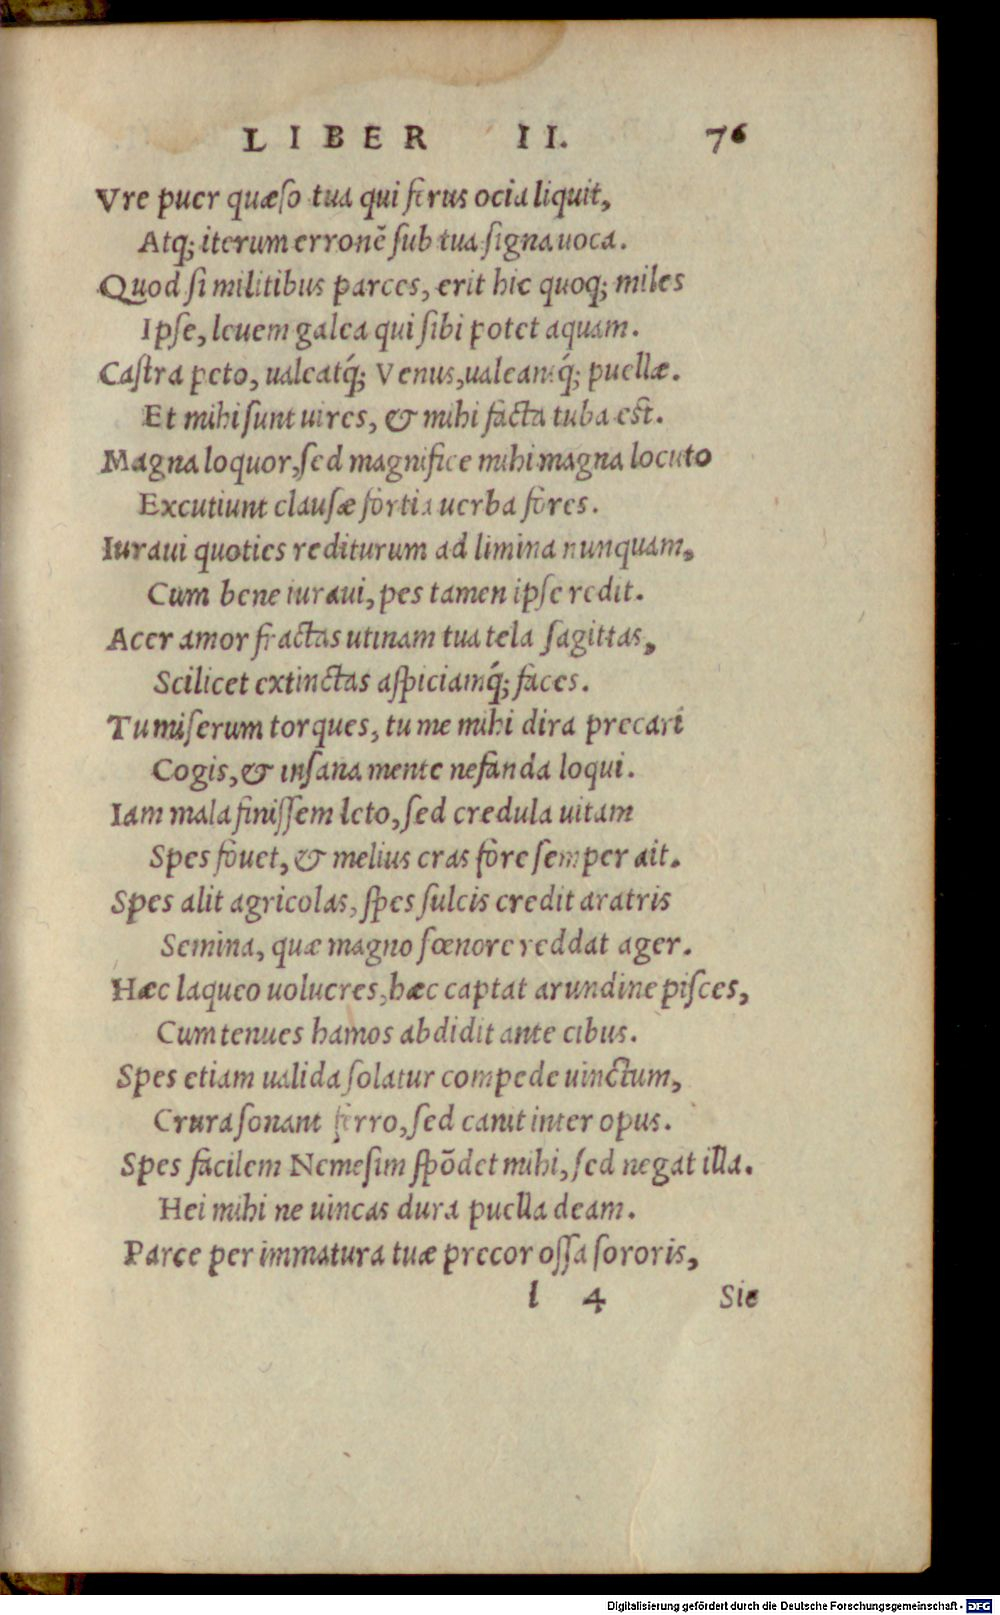 LIBER II. 76
Vre puer quæſo tua qui ferus ocia liquit,
Atq; iterum erronẽ ſub tua ſigna uoca.
Quod ſi militibus parces, erit hic quoq; miles
Ipſe, leuem galea qui ſibi potet aquam.
Caſtra peto, ualeatq́; Venus, ualeantq́; puellæ.
Et mihi ſunt uires, & mihi facta tuba eſt.
Magna loquor, ſed magnifice mihi magna locuto
Excutiunt clauſæ fortia uerba fores.
Iuraui quoties rediturum ad limina nunquam,
Cum bene iuraui, pes tamen ipſe redit.
Acer amor fractas utinam tua tela ſagittas,
Scilicet extinctas aſpiciamq́; faces.
Tu miſerum torques, tu me mihi dira precari
Cogis, & inſana mente nefanda loqui.
Iam mala finiſſem leto, ſed credula uitam
Spes fouet, & melius cras fore ſemper ait.
Spes alit agricolas, ſpes ſulcis credit aratris
Semina, quæ magno fœnore reddat ager.
Hæc laqueo uolucres, hæc captat arundine piſces,
Cum tenues hamos abdidit ante cibus.
Spes etiam ualida ſolatur compede uinctum,
Crura ſonant ferro, ſed canit inter opus.
Spes facilem Nemeſim ſpõdet mihi, ſed negat illa.
Hei mihi ne uincas dura puella deam.
Parce per immatura tuæ precor oſſa ſororis,
l 4 Sic
Digitalisierung gefördert durch die Deutsche Forschungsgemeinschaft - DFG